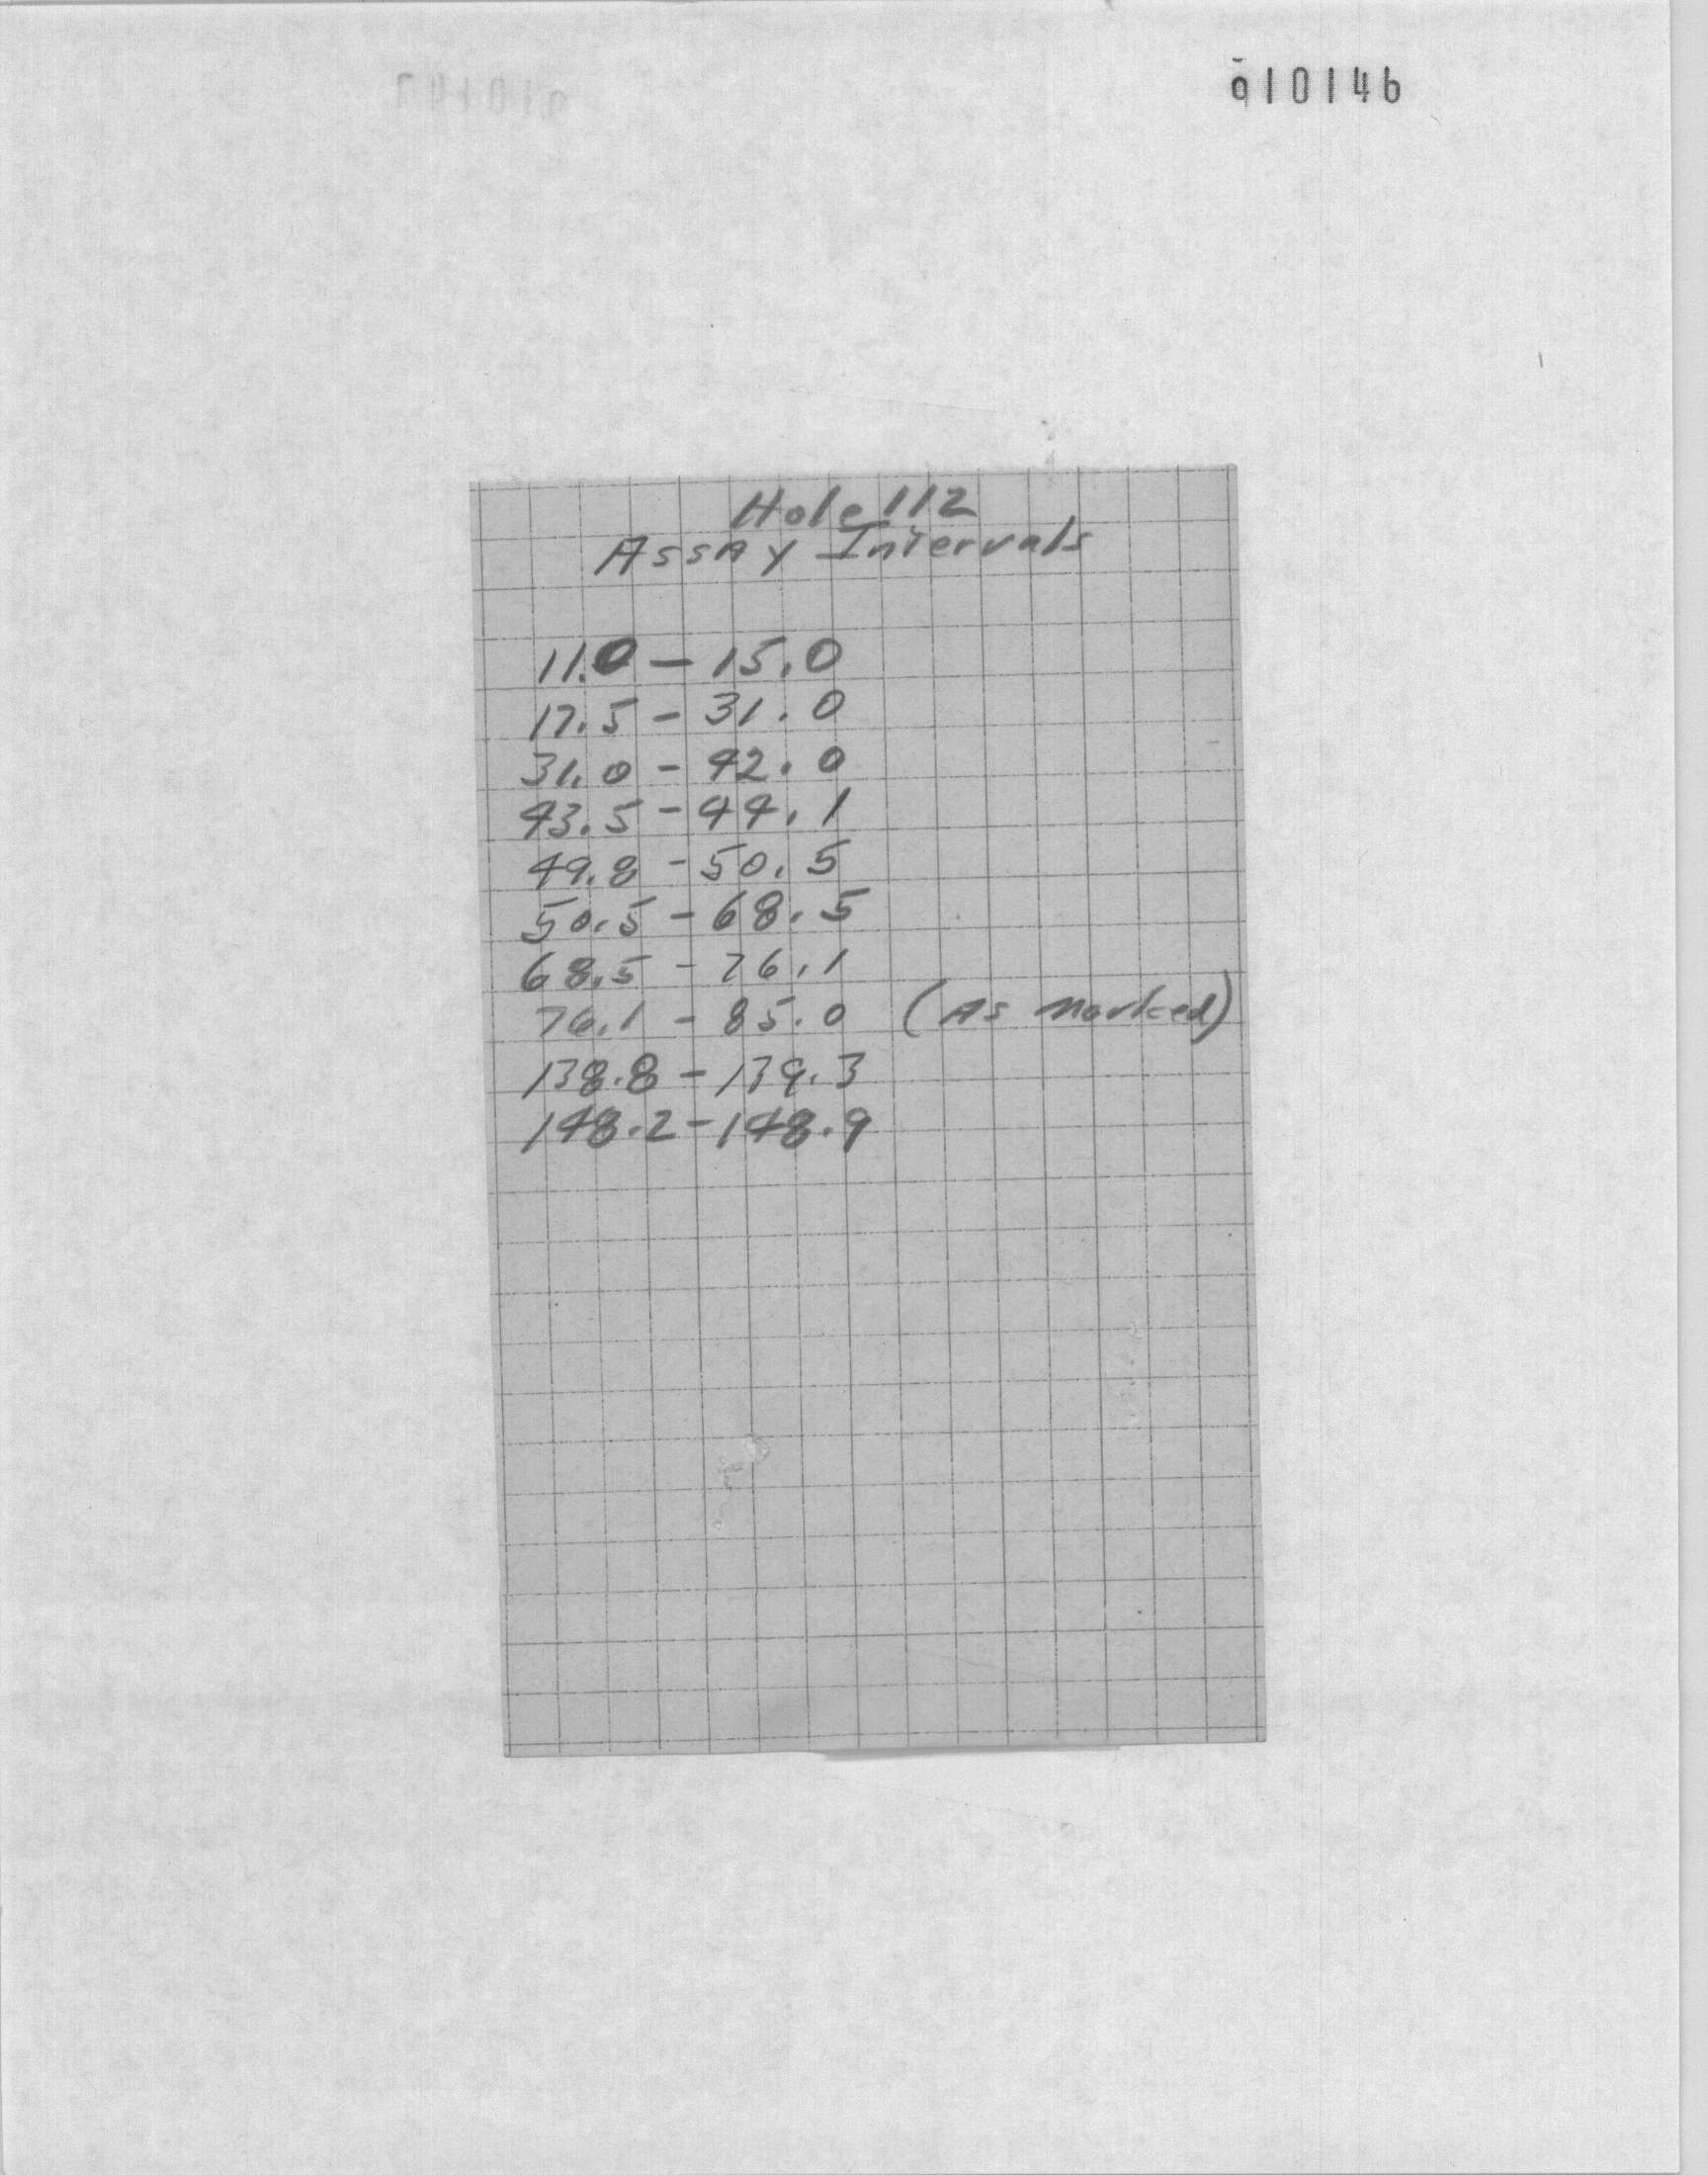 010146
Hole 112
Assay Intervals
11.0 - 15.0
17.5 - 31.0
31.0 - 42.0
43.5 - 44.1
49.8 - 50.5
50.5 - 68.5
68.5 - 76.1
76.1 - 85.0 (As marked)
138.8 - 139.3
148.2 - 148.9